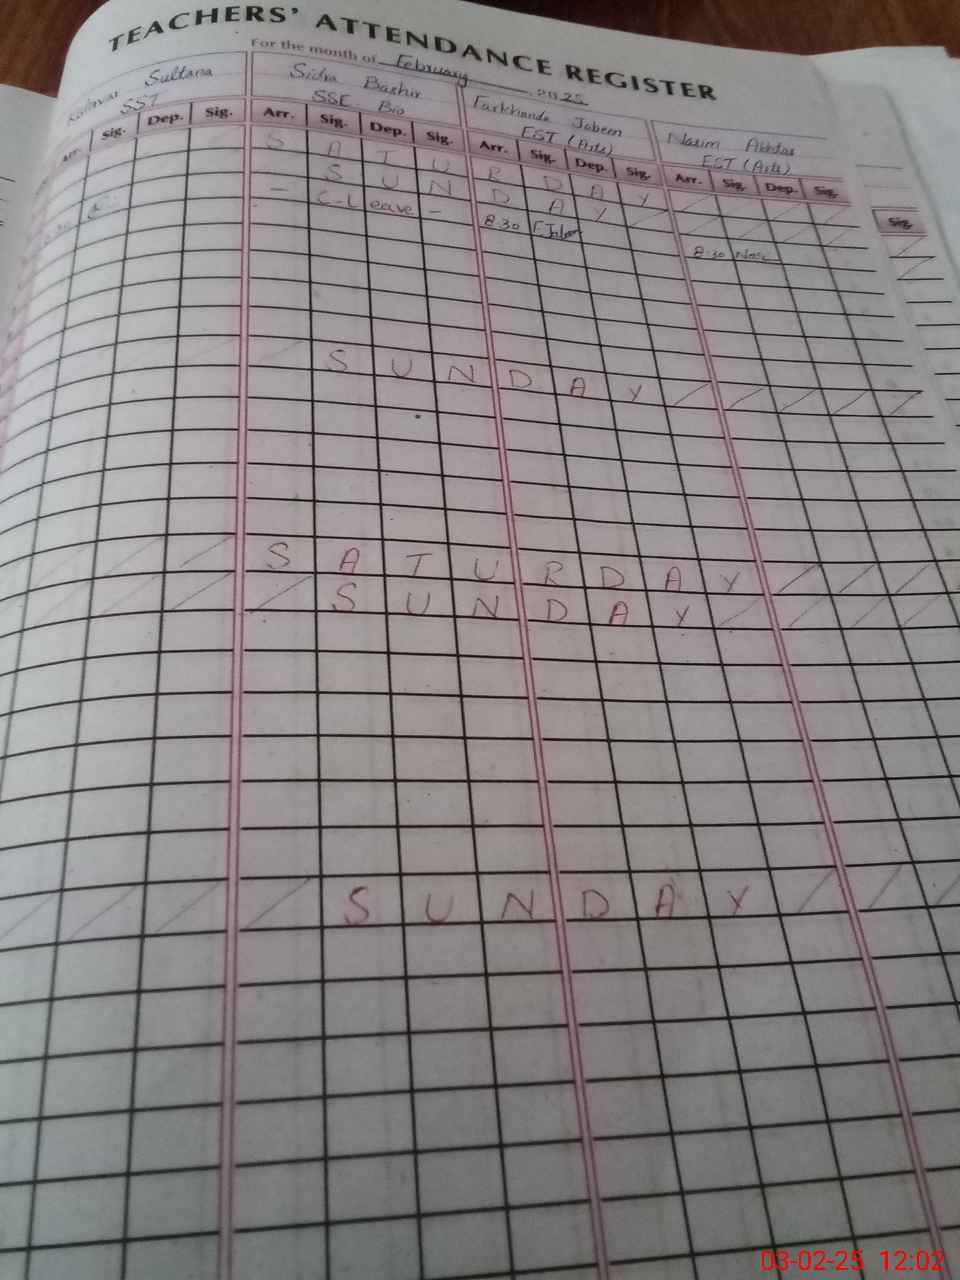 TEACHERS' ATTENDANCE REGISTER
For the month of February 2025
Sultana
SST
Sidra Bashir
SSE Bio
Farkhanda Jabeen
EST (Arts)
Nasim Akhtar
EST (Arts)
Arr. Sig. Dep. Sig. Arr. Sig. Dep. Sig. Arr. Sig. Dep. Sig. Arr. Sig. Dep. Sig.
Sig.
S A T U R D A Y
S U N D A Y
- C-Leave - 8:30
8:30
S U N D A Y
S A T U R D A Y
S U N D A Y
S U N D A Y
03-02-25 12:02